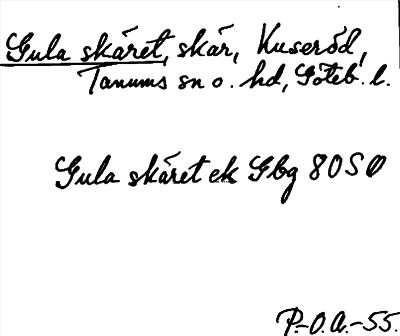 Gula skäret, skär, Kuseröd,
Tanums sn o. hd, Göteb. l.
Gula skäret ek Gbg 80 SO
P.-O.A.-55.